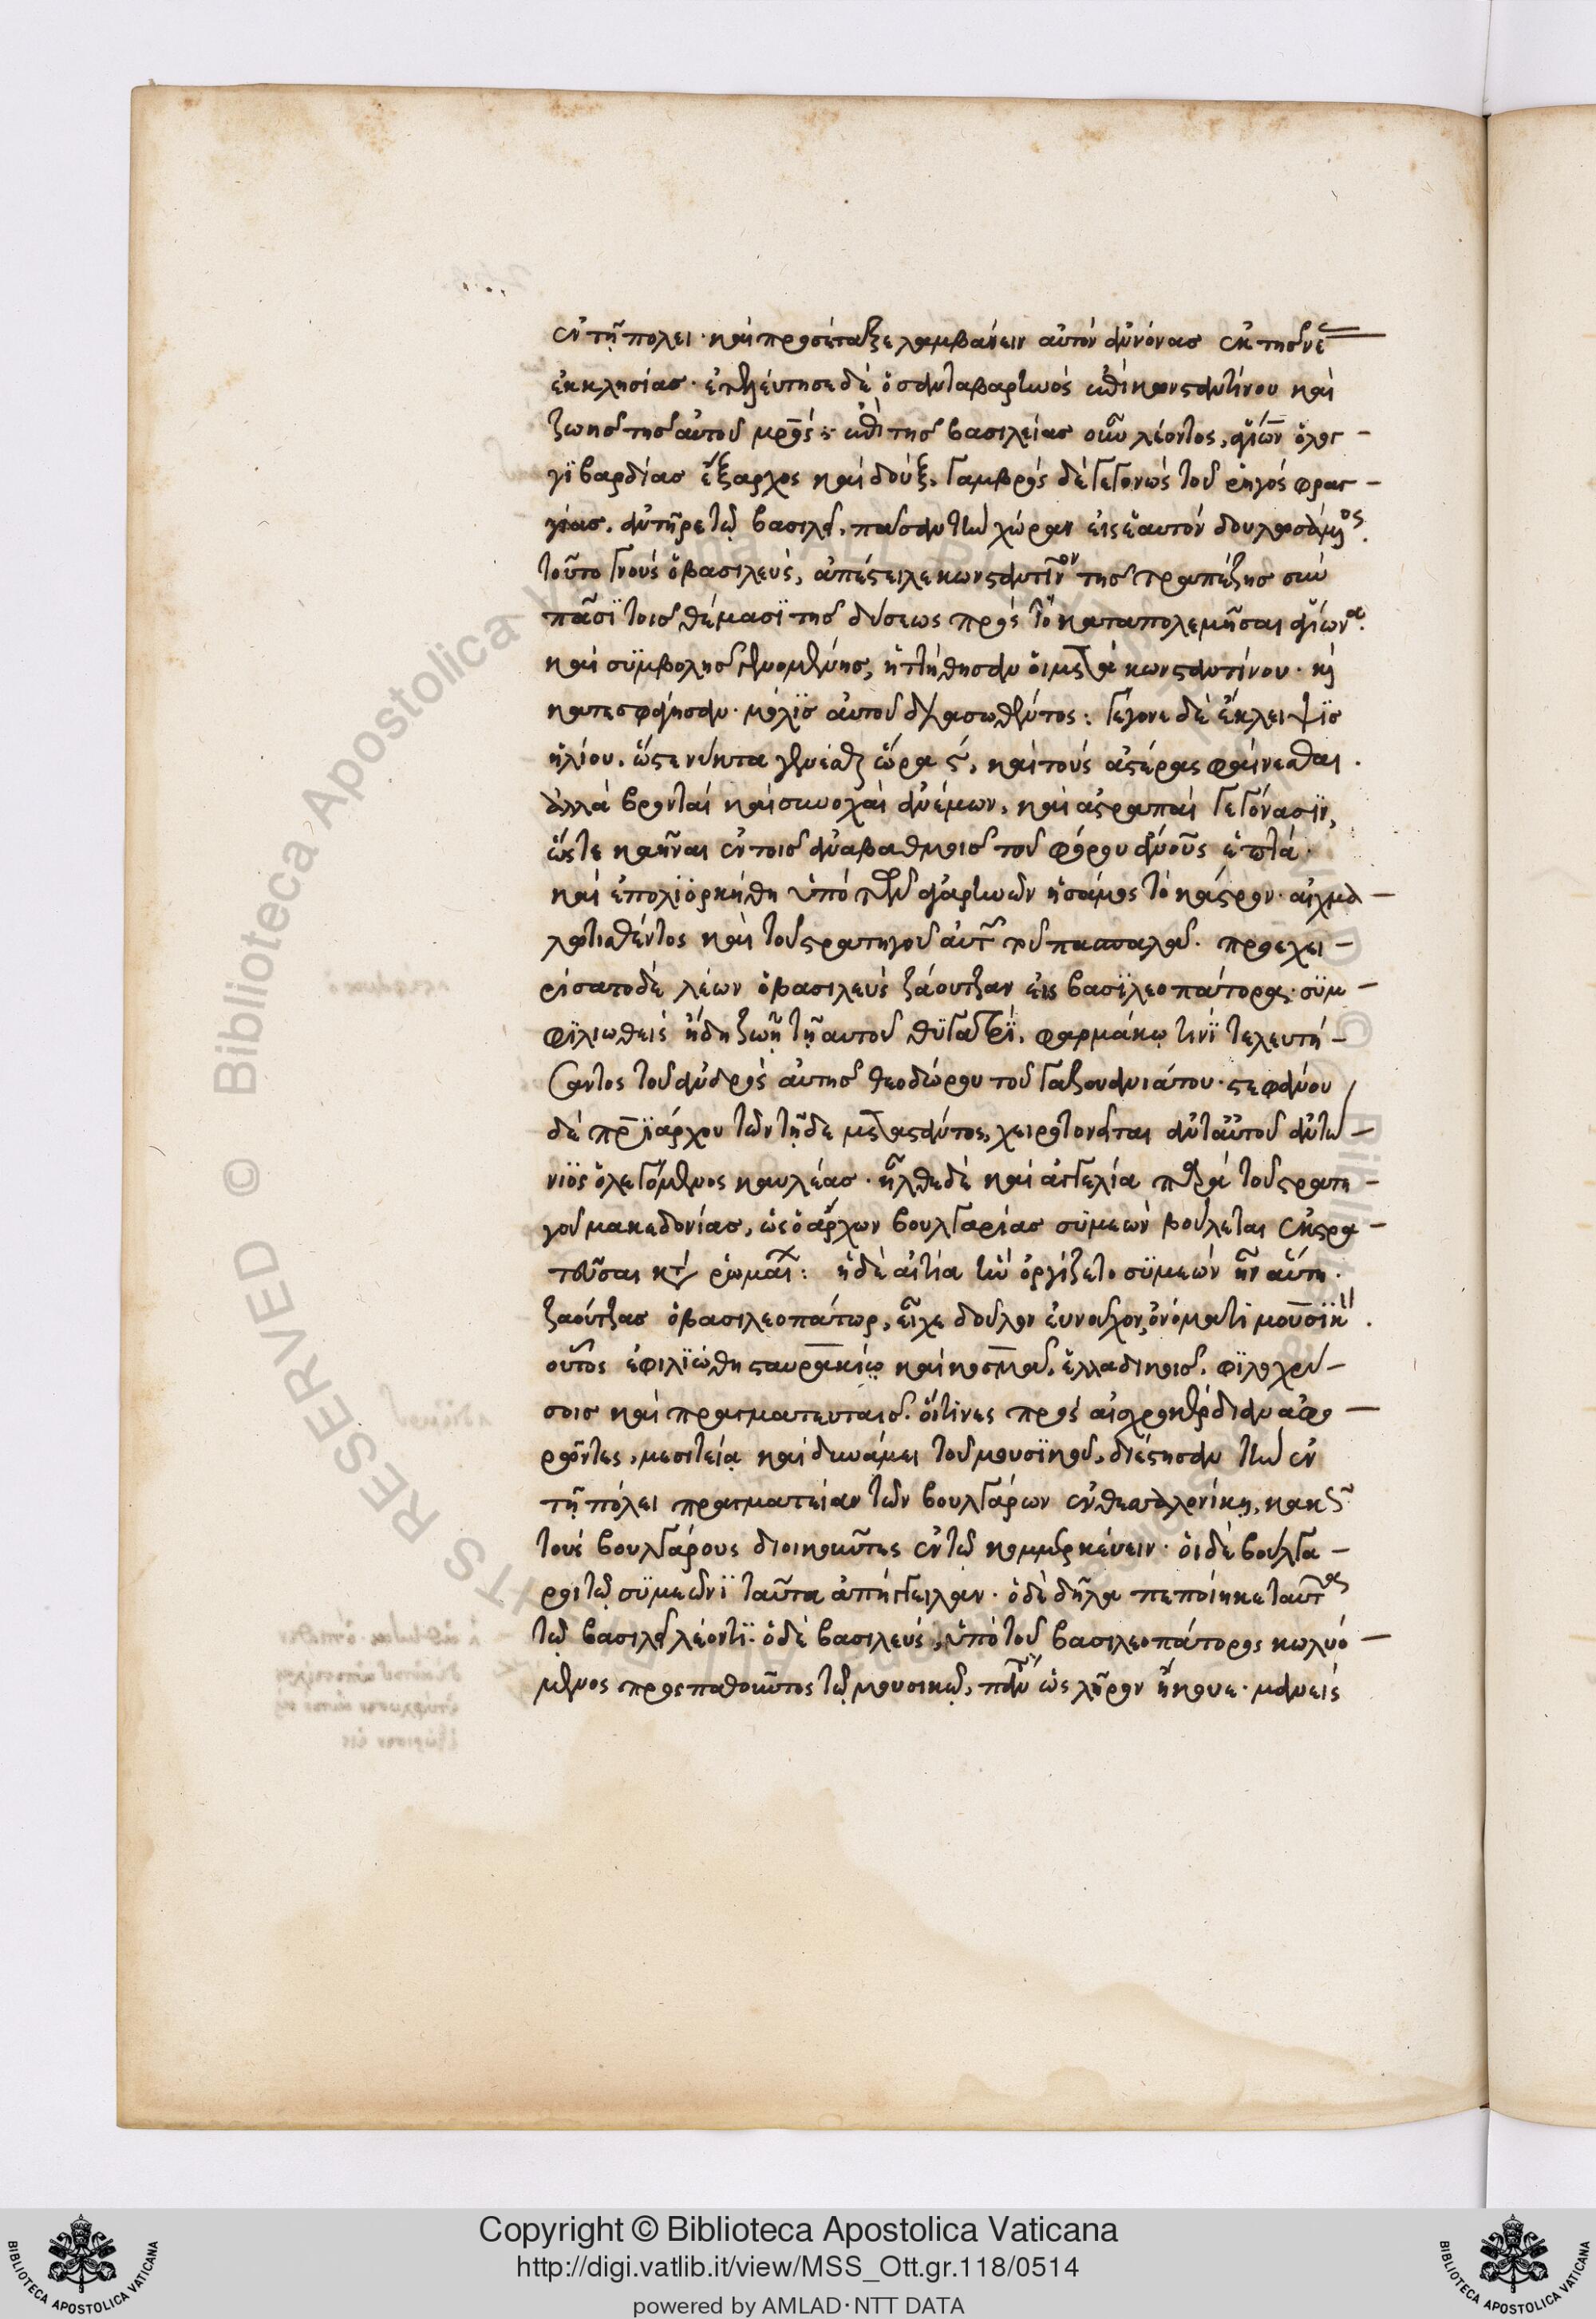 ἐν τῇ πόλει· καὶ προσέταξε λαμβάνειν αὐτὸν ἀννόνας ἐκ τῆς νέ
ἐκκλησίας· ἐτελεύτησε δὲ ὁ σανταβαρινὸς ἐπὶ κωνσταντίνου καὶ
ζωῆς τῆς αὐτοῦ μρς· ἐπὶ τῆς βασιλείας οὖν λέοντος, ἀγίων ὁ λογ-
γϊβαρδίας ἔξαρχος καὶ δούξ, γαμβρὸς δὲ γεγονὼς τοῦ ῥηγὸς φραγ-
γίας, ἀντῆρε τῷ βασιλεῖ, πᾶσαν τὴν χώραν εἰς ἑαυτὸν δουλωσάμενος.
τοῦτο γνοὺς ὁ βασιλεὺς, ἀπέστειλε κωνσταντῖνον τῆς τραπέζης σὺν
πᾶσϊ τοῖς θέμασϊ τῆς δύσεως πρὸς τὸ καταπολεμῆσαι ἀγίωνα.
καὶ συμβολῆς γενομένης, ἡττήθησαν οἱ μετὰ κωνσταντίνου· καὶ
κατεσφάγησαν· μόλϊς αὐτοῦ διασωθέντος: γέγονε δὲ ἔκλειψϊς
ἡλίου, ὥστε νύκτα γενέσθαι ὥρα ϛ, καὶ τοὺς ἀστέρας φαίνεσθαι.
ἀλλὰ βρονταὶ καὶ συνοχαὶ ἀνέμων, καὶ ἀστραπαὶ γεγόνασϊν,
ὥστε καῆναι ἐν τοῖς ἀναβαθμοῖς τοῦ φόρου ἀνοὺς ἑπτά·
καὶ ἐπολϊορκήθη ὑπὸ τῶν ἀγαρηνῶν ἡ σάμος τὸ κάστρον· αἰχμα-
λωτισθέντος καὶ τοῦ στρατηγοῦ αὐτῆς τοῦ πασπαλᾶ. προεχει-
ρίσατο δὲ λέων ὁ βασιλεὺς ζάουτζαν εἰς βασϊλεοπάτορα· συμ-
φϊλιωθεὶς ἤδη ζωῇ τῇ αὐτοῦ θϋγατρϊ, φαρμάκῳ τινϊ τελευτή-
σαντος τοῦ ἀνδρὸς αὐτῆς θεοδώρου τοῦ γαζουνιάτου· στεφάνου
δὲ πρϊάρχου τῶν τῇδε μεταστάντος, χειροτονεῖται ἀντ' αὐτοῦ ἀντώ-
νιος ὁ λεγόμενος καυλέας· ἦλθε δὲ καὶ ἀγγελία παρὰ τοῦ στρατη-
γοῦ μακεδονίας, ὡς ὁ ἄρχων βουλγαρίας συμεὼν βούλεται ἐκστρα-
τεῦσαι κατὰ ῥωμαί: ἡ δὲ αἰτία ἣν ὀργίζετο συμεὼν ἦν αὕτη·
ζαούτζας ὁ βασιλεοπάτωρ, εἶχε δοῦλον εὐνοῦχον, ὀνόματι μουσϊκ.
οὗτος ἐφιλϊώθη σταυρακίῳ καὶ κοσμᾷ, ἑλλαδικοῖς, φϊλοχρύ-
σοις καὶ πραγματευταῖς. οἵτινες πρὸς αἰσχροκέρδιαν ἀφο-
ρῶντες, μεσιτείᾳ καὶ δυνάμει τοῦ μουσϊκοῦ, διέστησαν τὴν ἐν
τῇ πόλει πραγματείαν τῶν βουλγάρων ἐν θεσσαλονίκῃ, κακῶς
τοὺς βουλγάρους διοικοῦντες ἐν τῷ κομμερκεύειν· οἱ δὲ βούλγα-
ροι τῷ συμεῶνϊ ταῦτα ἀπήγγειλαν· ὁ δὲ δῆλα πεποίηκε ταῦτα
τῷ βασιλεῖ λέοντϊ· ὁ δὲ βασιλεὺς, ὑπὸ τοῦ βασιλεοπάτορος κωλυό-
μενος προσπαθοῦντος τῷ μουσικῷ, πάντα ὡς λῆρον ἤκουε· μανεὶς
Copyright © Biblioteca Apostolica Vaticana
http://digi.vatlib.it/view/MSS_Ott.gr.118/0514
powered by AMLAD·NTT DATA